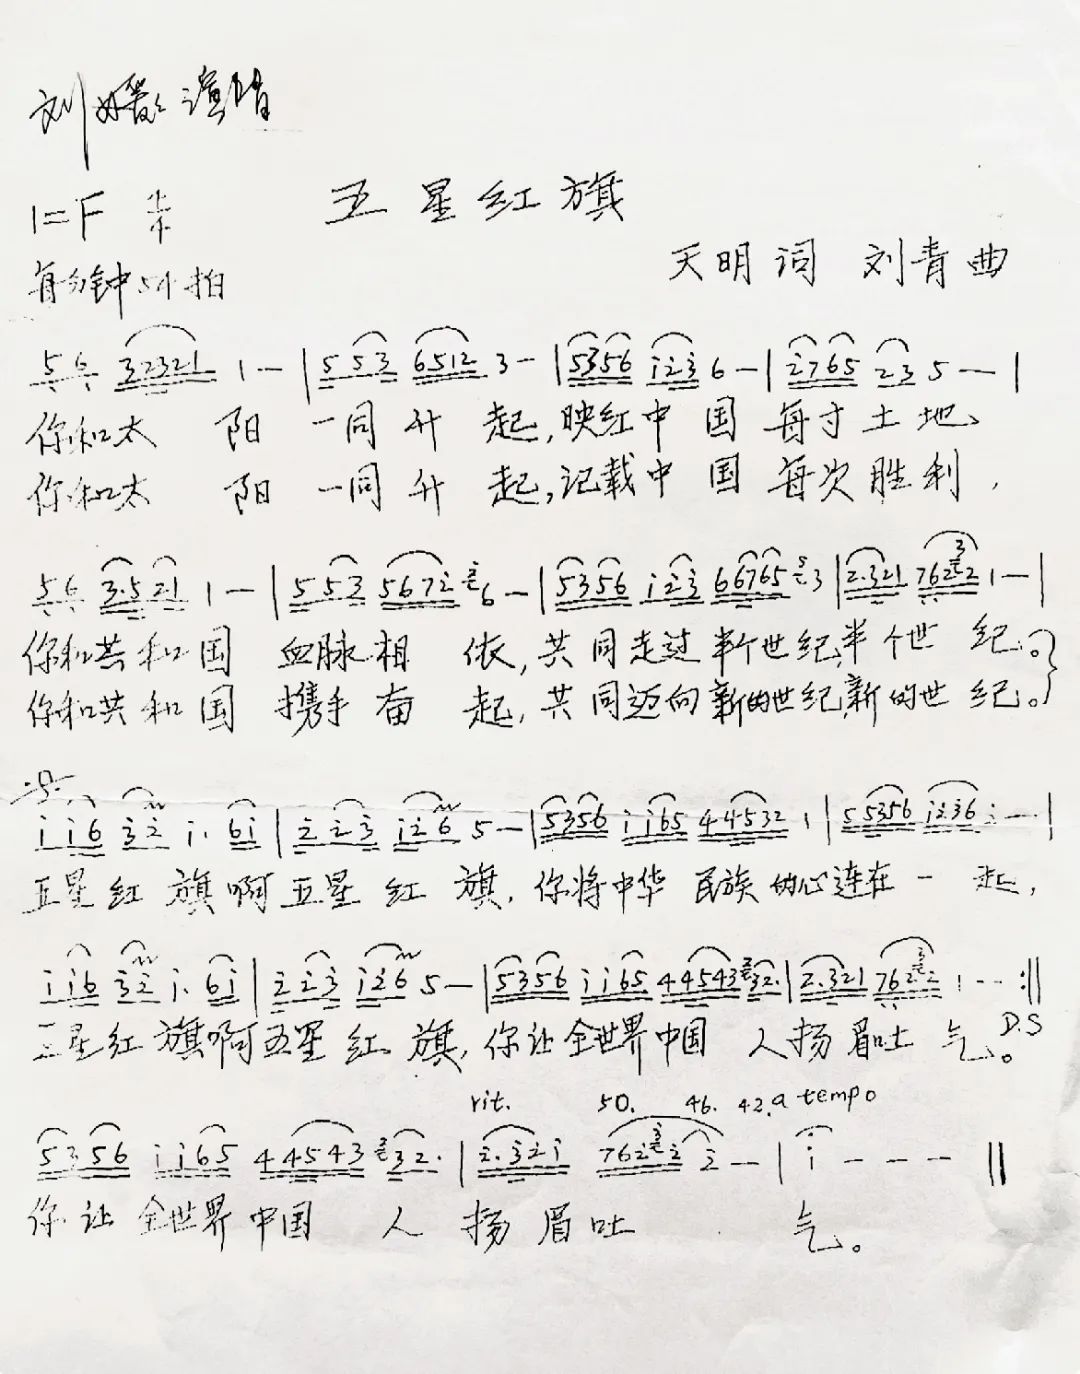 刘媛媛演唱
五星红旗
1=F
天明词 刘青曲
每分钟54拍
5 6 32321 1 - | 5 5 3 6512 3 - | 5356 i 2 3 6 - | 2765 23 5 - - |
你和太 阳 一同升 起,映红中 国 每寸土地、
你和太 阳 一同升 起,记载中 国 每次胜利,
5 6 3.5 21 1 - | 5 5 3 567i 6 - | 5356 i 2 3 66765 3 | 2.321 7622 1 - |
你和共和国 血脉相 依,共同走过半个世纪,半个世 纪。
你和共和国 携手奋 起,共同迈向新的世纪,新的世 纪。
i i 6 3 2 i. 6i | 2 2 3 i26 5 - | 5356 i i65 44532 1 | 5 5356 i236 i - - |
五星红 旗啊五星红 旗,你将中华 民族的心连在一 起,
i i6 32 i. 6i | 2 2 3 i26 5 - | 5356 i i65 44543 32. | 2.321 7622 1 - - :‖
五星红旗啊五星红旗,你让全世界中国 人扬眉吐 气。 D.S
rit. 50. 46. 42. a tempo
5356 i i65 44543 32. | 2.32i 7622 2 - | i - - - ‖
你让 全世界中国 人 扬眉吐 气。